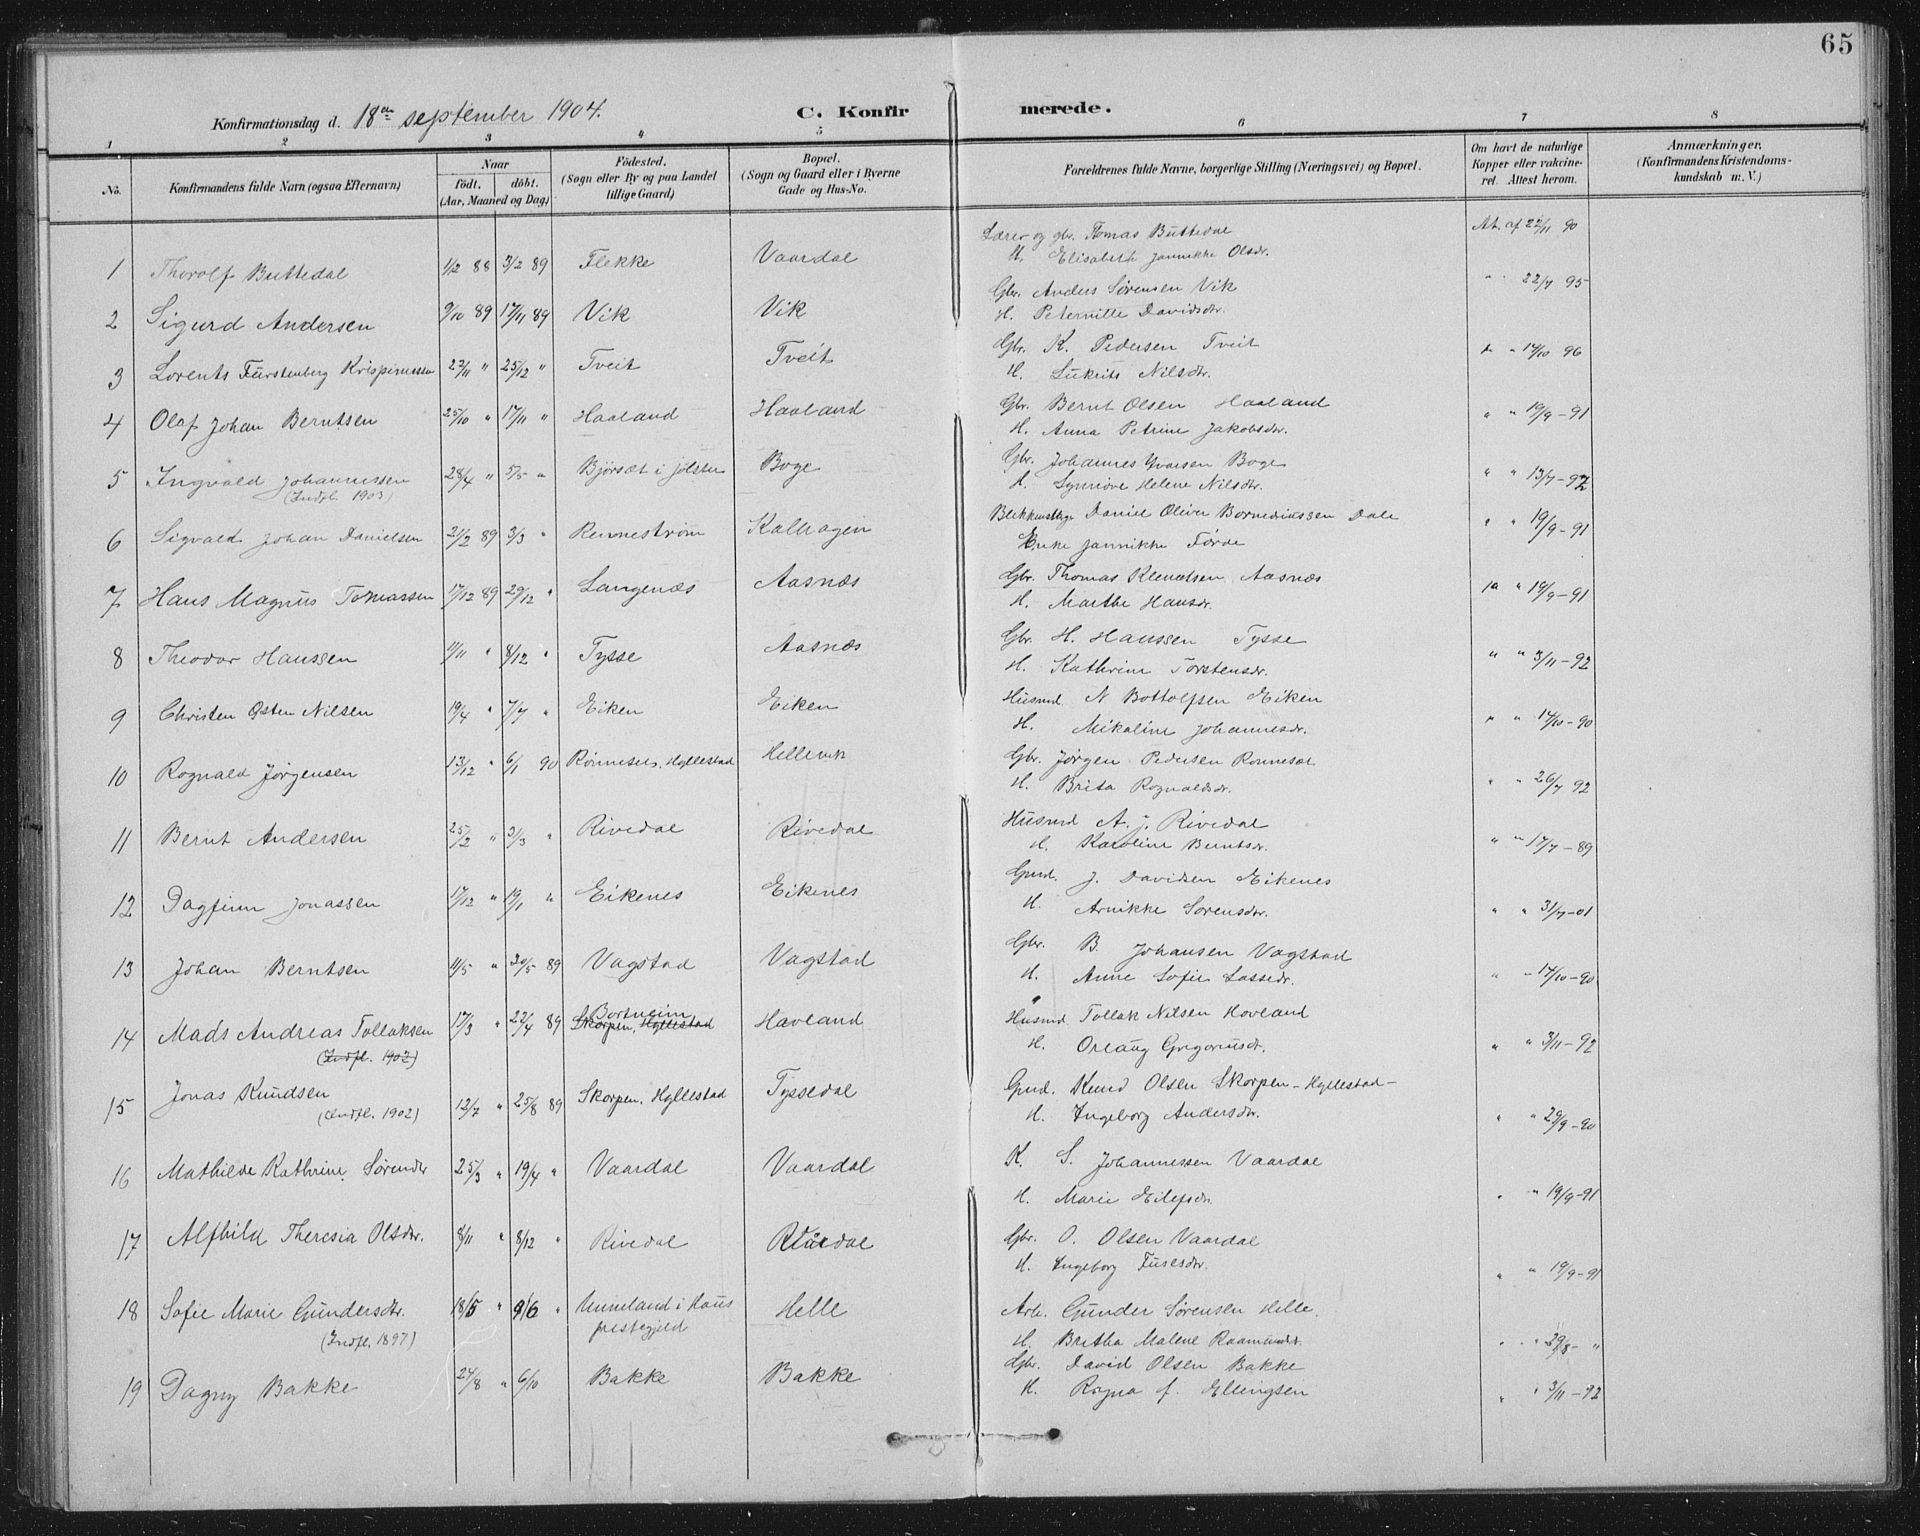 65
Konfirmationsdag d. 18de september 1904. C. Konfirmerede.
1 2 3 4 5 6 7 8
No. Konfirmandens fulde Navn (ogsaa Efternavn) Naar født. døbt. (Aar, Maaned og Dag) Fødested. (Sogn eller By og paa Landet tillige Gaard) Bopæl. (Sogn og Gaard eller i Byerne Gade og Hus-No. Forældrenes fulde Navne, borgerlige Stilling (Næringsvei) og Bopæl. Om havt de naturlige Kopper eller vakcineret. Attest herom. Anmærkninger. (Konfirmandens Kristendomskundskab m. V.)
Lærer og gbr. Tomas Buttedal At. af 22/11 90
1 Thorolf Buttedal 1/12 88 3/2 89 Flekke Vaardal H. Elisabeth Jannikke Olsdr.
Gbr. Anders Sørensen Vik " 22/7 95
2 Sigurd Andersen 9/10 89 17/11 89 Vik Vik H. Peternille Davidsdr.
Gbr. K. Pedersen Tveit " " 14/10 96
3 Lorents Furstenberg Krispinussen 22/11 " 25/12 " Tveit Tveit H. Lukrits Nilsdr.
Gbr. Bernt Olsen Haaland " " 19/9-91
4 Olaf Johan Berntsen 25/10 " 17/11 " Haaland Haaland H. Anna Petrine Jakobsdr.
Gbr. Johannes Yvarsen Boge " " 13/7-92
5 Ingvald Johannessen 28/4 " 5/5 " Bjørsæt i Jølster Boge H. Synnøve Helene Nilsdr.
(Indfl. 1903)
Daniel Oliver Dale " " 19/9-91
6 Sigvald Johan Danielsen 21/2 89 3/3 " Rennestrøm Kalhagen Enke Jannikke Førde
Gbr. Thomas Aasnæs " 19/9-91
7 Hans Magnus Tomassen 17/12 89 29/12 " Langenæs Aasnæs H. Marthe Hansdr.
Gbr. H. Hanssen Tysse
8 Theodor Hanssen 11/11 " 8/12 " Tysse Aasnæs H. Kathrine Torstensdr. " " 3/11-92
Husmd. N Bottolfsen Eiken
9 Christen Østen Nilsen 19/4 " 7/7 " Eiken Eiken H. Mikaline Johannesdr. " " 14/10-90
Gbr. Jørgen Pedersen Rønneset
10 Rognald Jørgensen 13/12 " 6/1 90 Rønneset, Hyllestad Hellevik H. Brita Rognaldsdr. " " 26/7 92
Husmd A. J. Rivedal
11 Bernt Andersen 25/2 " 3/3 " Rivedal Rivedal H. Karoline Berntsdr. " " 17/7-89
Gmd. J. Davidsen Eikenes
12 Dagfinn Jonassen 17/12 " 19/1 " Eikenes Eikenes H. Arnikke Sørensdr. " " 31/7-01
Gbr. B. Johansen Vagstad
13 Johan Berntsen 4/5 " 30/5 89 Vagstad Vagstad H. Anne Sofie Lassedr. " " 14/10-90
Bortneim
14 Mads Andreas Tollaksen 17/3 " 22/4 89 Skorpen, Hyllestad Havland Husmd. Tollak Nilsen Hovland
(Indfl. 1902) H. Orlaug Gregoriusdr. " " 3/11-92
15 Jonas Knudsen 12/7 " 25/8 89 Skorpen, Hyllestad Tyssedal Gmd. Knud Olsen Skorpen-Hyllestad-
(Indfl. 1902) H. Ingeborg Andersdr. " " 29/9-90
K. S. Johannessen Vaardal
16 Mathilde Kathrine Sørensdr 25/3 " 19/4 " Vaardal Vaardal H. Marie Eilefsdr. " " 19/9-91
17 Alfhild Theresia Olsdr. 8/11 " 8/12 " Rivedal Gbr. O. Olsen Vaardal
H. Ingeborg " " 19/9-91
18 Sofie Marie Gundersdr. 18/5 " 9/6 " Unneland i Haus præstegjeld Helle Arb. Gunder Sørensen Helle.
(Indfl. 1897) H. Britha Malene Raamundsdr. " " 29/8- "
Gbr. David Olsen Bakke
19 Dagny Bakke 24/8 " 6/10 Bakke Bakke H. Ragna f. Ellingsen " " 3/11-92